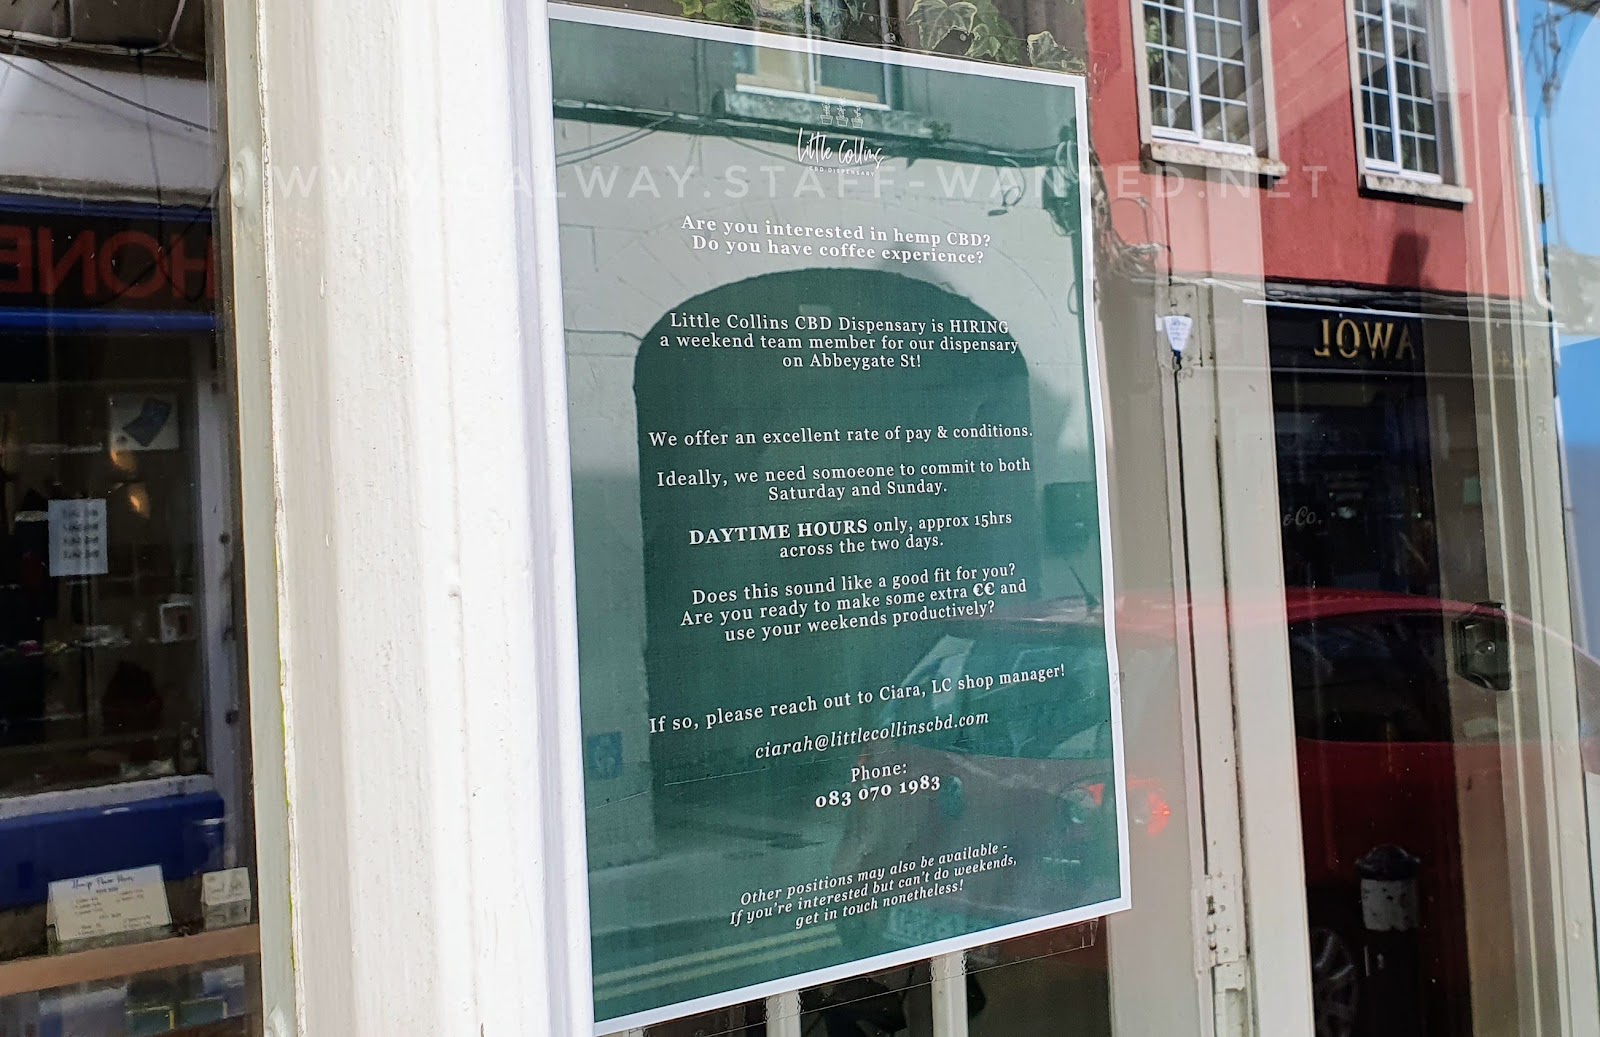 Little Collins
CBD DISPENSARY
Are you interested in hemp CBD?
Do you have coffee experience?
Little Collins CBD Dispensary is HIRING
a weekend team member for our dispensary
on Abbeygate St!
We offer an excellent rate of pay & conditions.
Ideally, we need somoeone to commit to both
Saturday and Sunday.
DAYTIME HOURS only, approx 15hrs
across the two days.
Does this sound like a good fit for you?
Are you ready to make some extra €€ and
use your weekends productively?
If so, please reach out to Ciara, LC shop manager!
ciarah@littlecollinscbd.com
Phone:
083 070 1983
Other positions may also be available -
If you're interested but can't do weekends,
get in touch nonetheless!